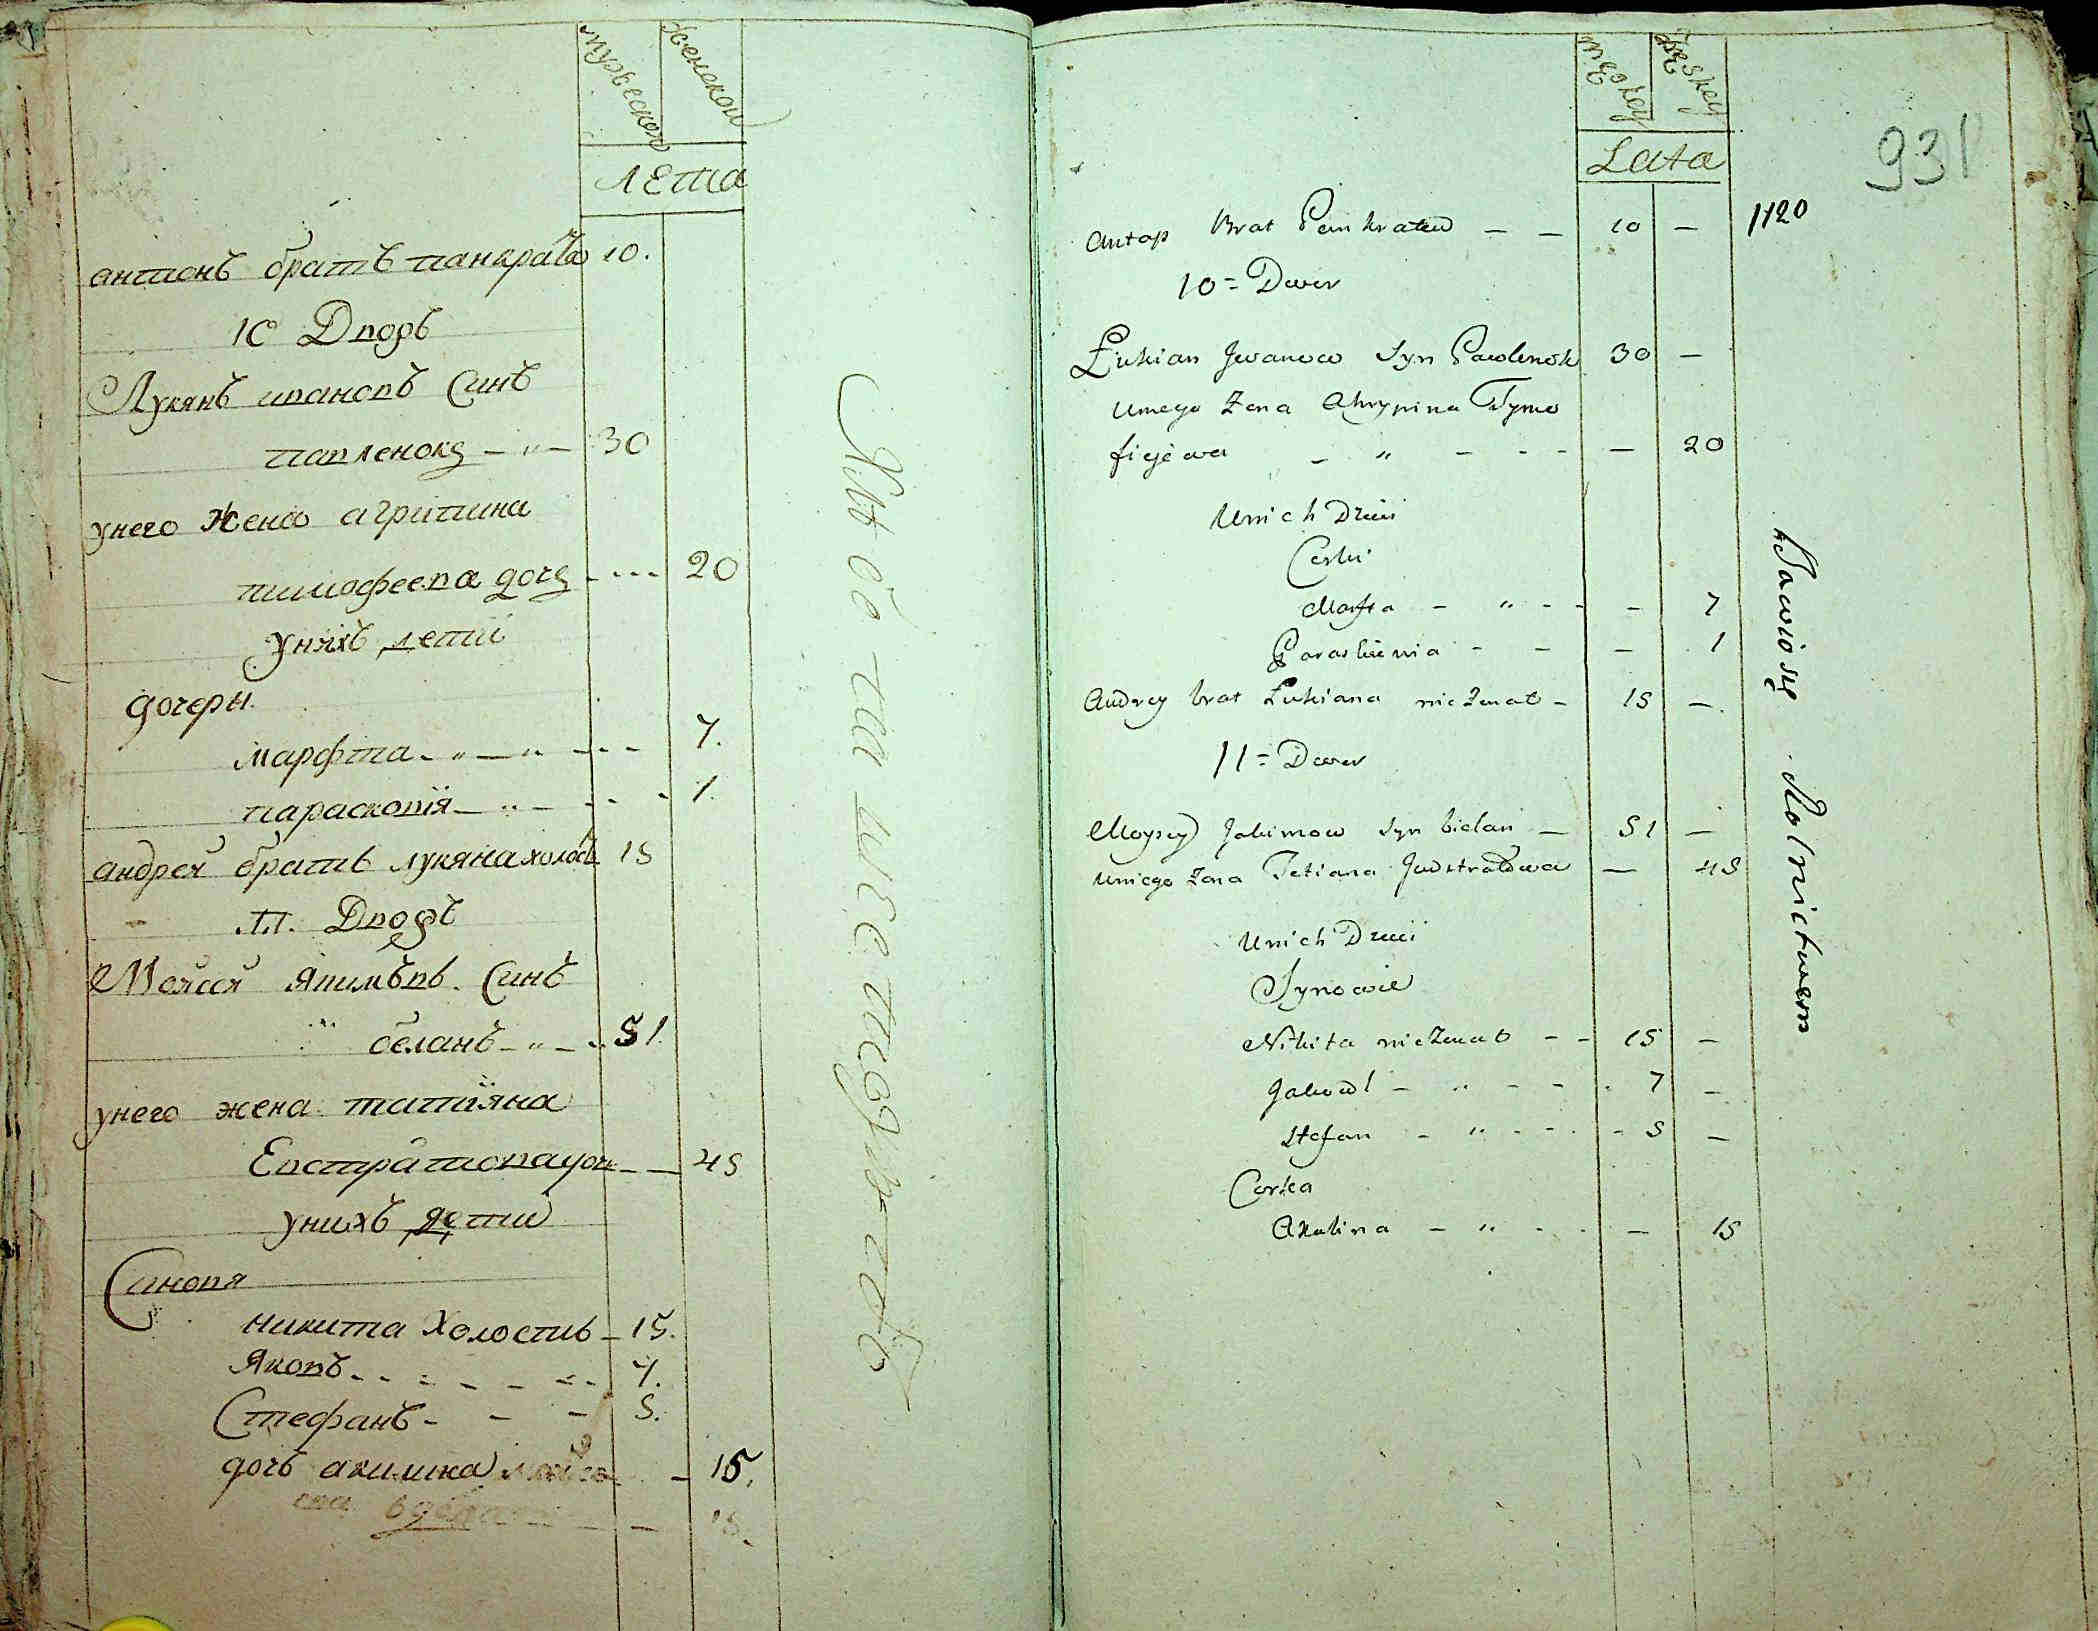 мужеской женской
лета
антонъ братъ панкрата 10.
10 Дворъ
Лукянъ ивановъ Синъ
павленокъ - „ - 30
унего жена агрипина
тимофеева дочь - - - 20
унихъ дети
дочеры
марфта - „ - „ - - - 7.
парасковiя - „ - - - - 1.
андрей братъ лукяна холостъ 15
11. Дворъ
Мойсей Якимовъ Синъ
беланъ - „ - - 51.
унего жена татiяна
Евстратова дочь - - 45
унихъ дети
Синовя
никита холостъ - 15.
Яковъ - - - - - - - 7.
Стефанъ - - - 5.
дочь акилина - 15.
męzkey żeńskey
Lata
931
Antop Brat Pankratew - - 10 - 1120
10 = Dwor
Łukian Jwanow Syn Pawlenok 30 -
Uniego Zona Ahrypina Tymo
fiejewa - „ - - - - 20
Unich Dzieci
Corki
Marfta - „ - - - 7
Paraskiewia - - - 1
Andrey brat Łukiana nieżenat - 15 -
11 = Dwor
Moysey Jakimow Syn bielan - 51 -
Uniego Zona Tetiana Jewstratowa - 45
Unich Dzieci
Synowie
Nikita nieżenat - - 15 -
Jakowl - „ - - - 7 -
Stefan - „ - - - - 5 -
Corka
Akulina - „ - - - 15
bawio się Rolnictwem